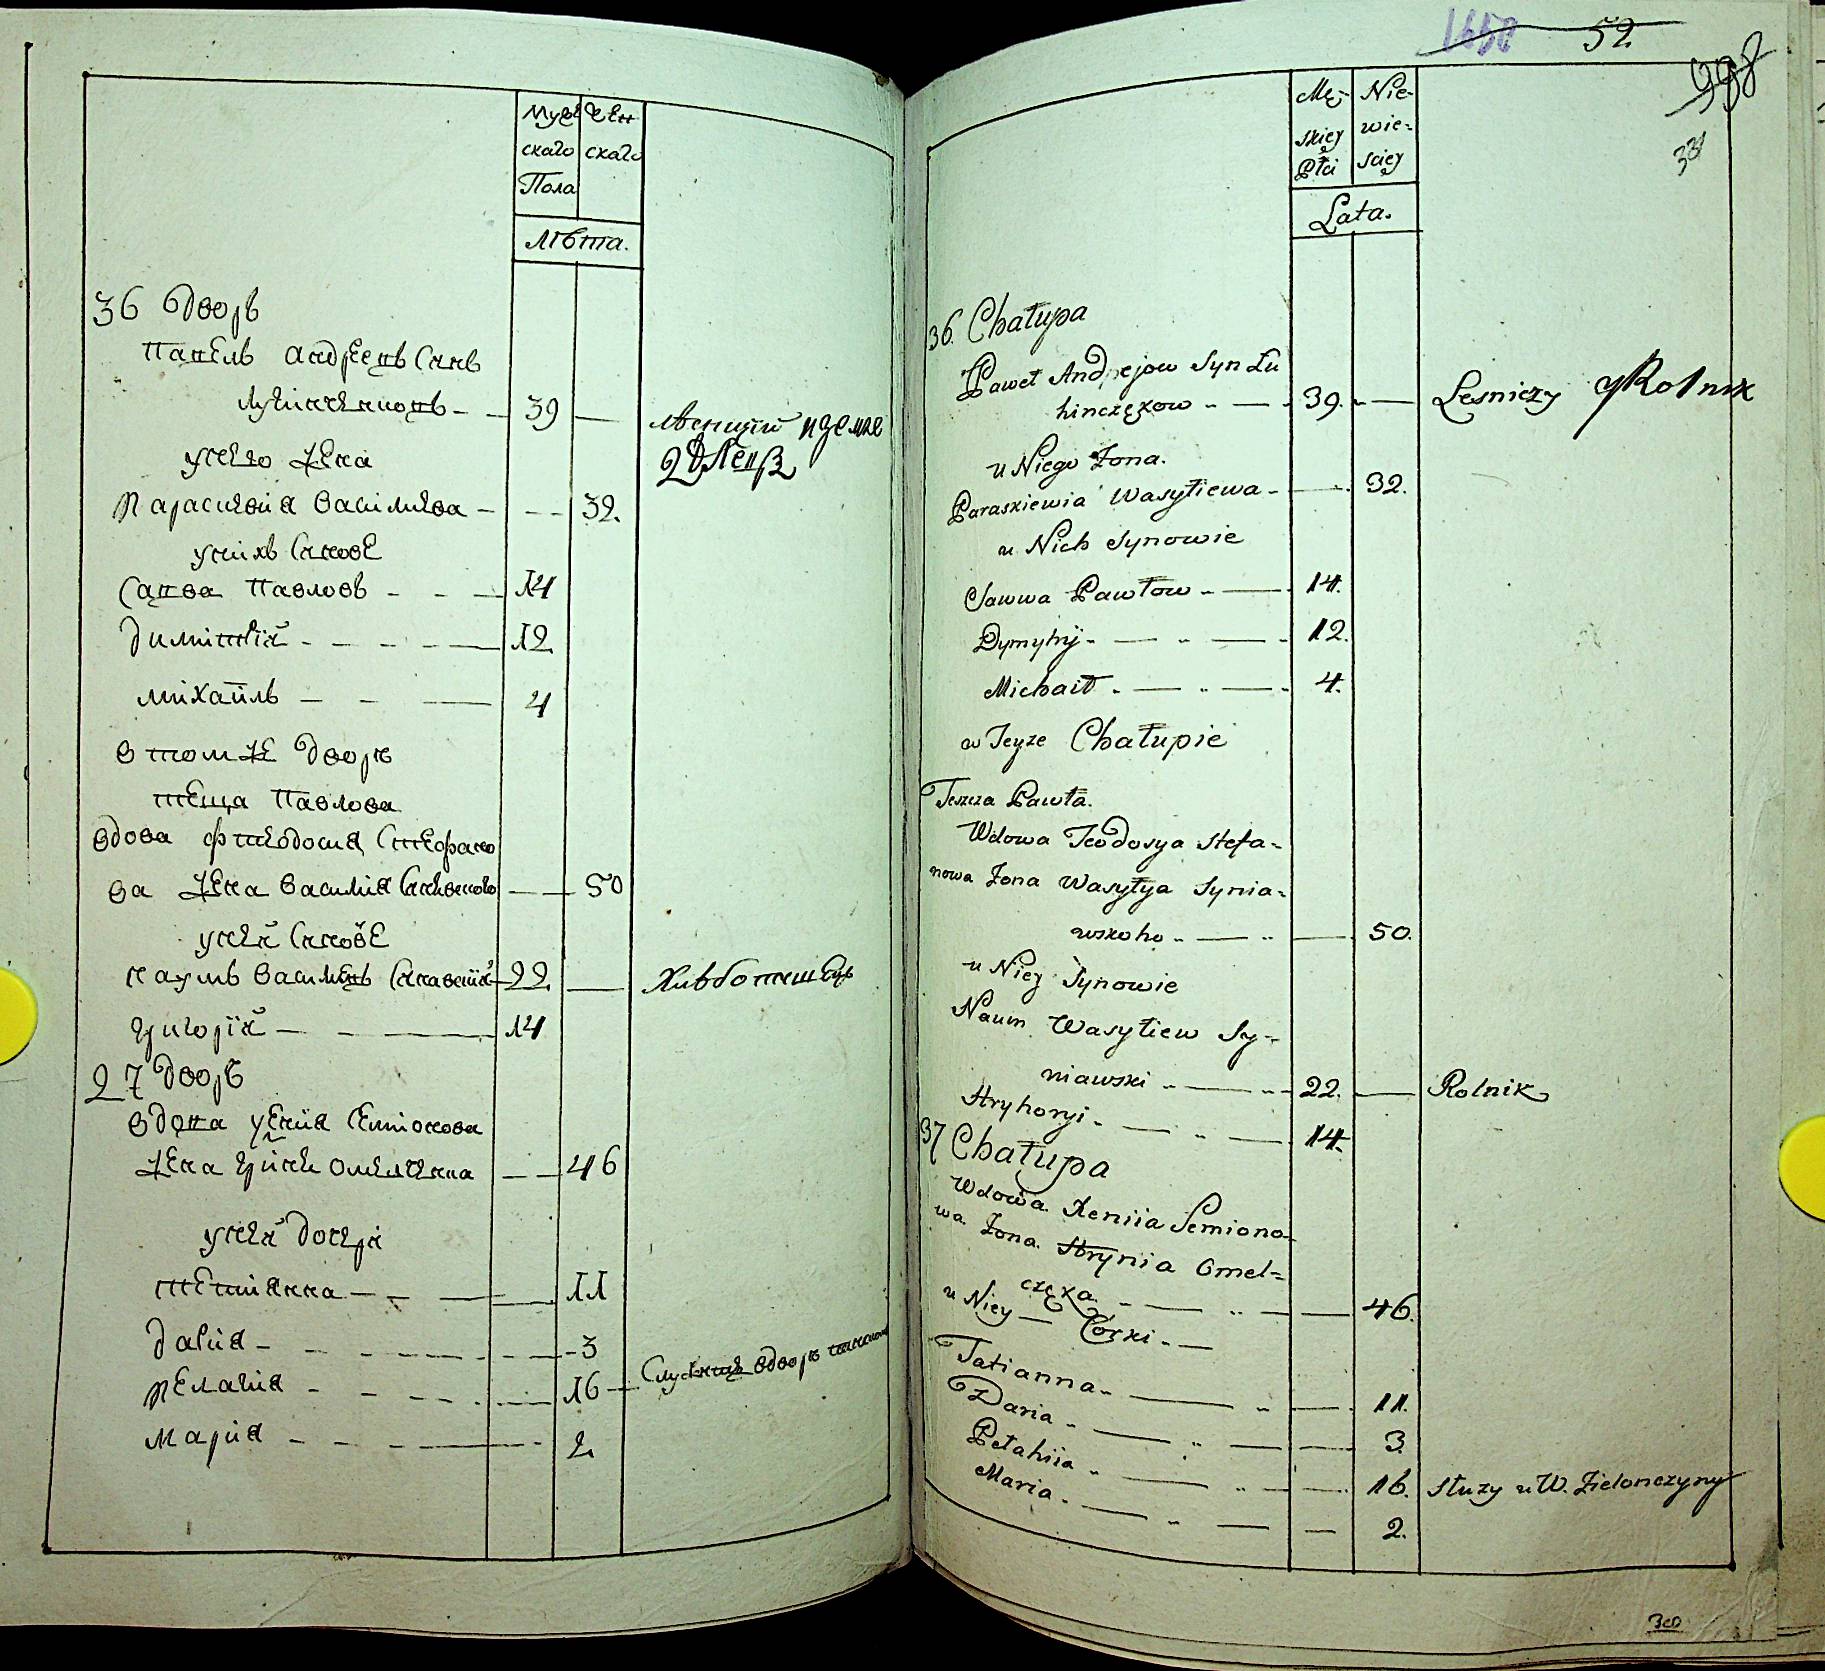 Муж Жен
скаго скаго
Пола
Лѣта.
36 дворъ
Павелъ Андреевъ Синъ
39
лѣсничій
унего жена
Параскевия Василиева - -- 32.
унихъ Синове
Савва Павловъ - - - 14
Димитрій - - - - - 12
Михаилъ - - - 4
втомже дворѣ
теща Павлова
вдова Фтеодосия Стефано
ва жена Василия Синявского - - 50
унея Синове
Наумъ Василиевъ Синявскій 22 — Хлѣбопашецъ
Григорій - - - 14
27 дворъ
вдова Ксения Семионова
жена Гриня Омелченка - - 46
унея дочери
Тетиянна - - - - II
Дария - - - - - - 3
Пелагия - - - - - 16 - Служитъ вдворѣ
Мария - - - - - 2
1650 52.
998
331
Męz- Nie-
skiey wie-
Płci sciey
Lata.
36. Chałupa
Paweł Andrejow Syn Łu
hinczękow - — 39. - — Leśniczy y Rolnik
u Niego Żona.
Paraskiewia Wasyliewa - — 32.
u Nich Synowie
Sawwa Pawłow - — 14.
Dymytry - — " — 12.
Michaił - — " — 4.
w Teyze Chałupie
Teszcza Pawła.
Wdowa Teodosya Stefa-
nowa Żona Wasylya Synia-
wskoho - — " — 50.
u Niey Synowie
Naum Wasyliew Sy-
niawski - — " 22. — Rolnik
Hryhoryi - — " — 14.
37 Chałupa
Wdowa Xeniia Semiono-
wa Żona Hrynia Omel-
częka. - — " — 46.
u Niey — Corki - —
Tatianna - — " — 11.
Daria - — " — 3.
Pełahiia - — " — 16. służy u W. Zielonczyny
Maria - — " — 2.